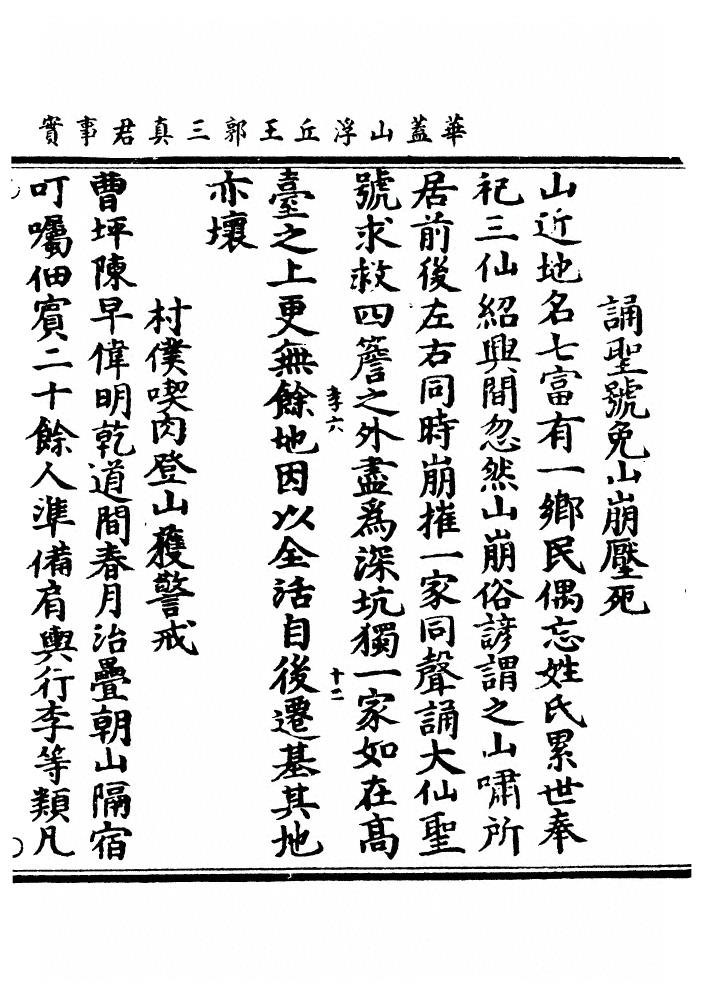 華蓋山浮丘王郭三真君事實
誦聖號免山崩壓死
山近地名七富有一鄉民偶忘姓氏累世奉
祀三仙紹興間忽然山崩俗諺謂之山嘯所
居前後左右同時崩摧一家同聲誦大仙聖
號求救四簷之外盡爲深坑獨一家如在高
李六
十二
臺之上更無餘地因以全活自後遷基其地
亦壞
村僕喫肉登山獲警戒
曹坪陳早偉明乾道間春月治疊朝山隔宿
叮囑佃賓二十餘人準備肩輿行李等類凡